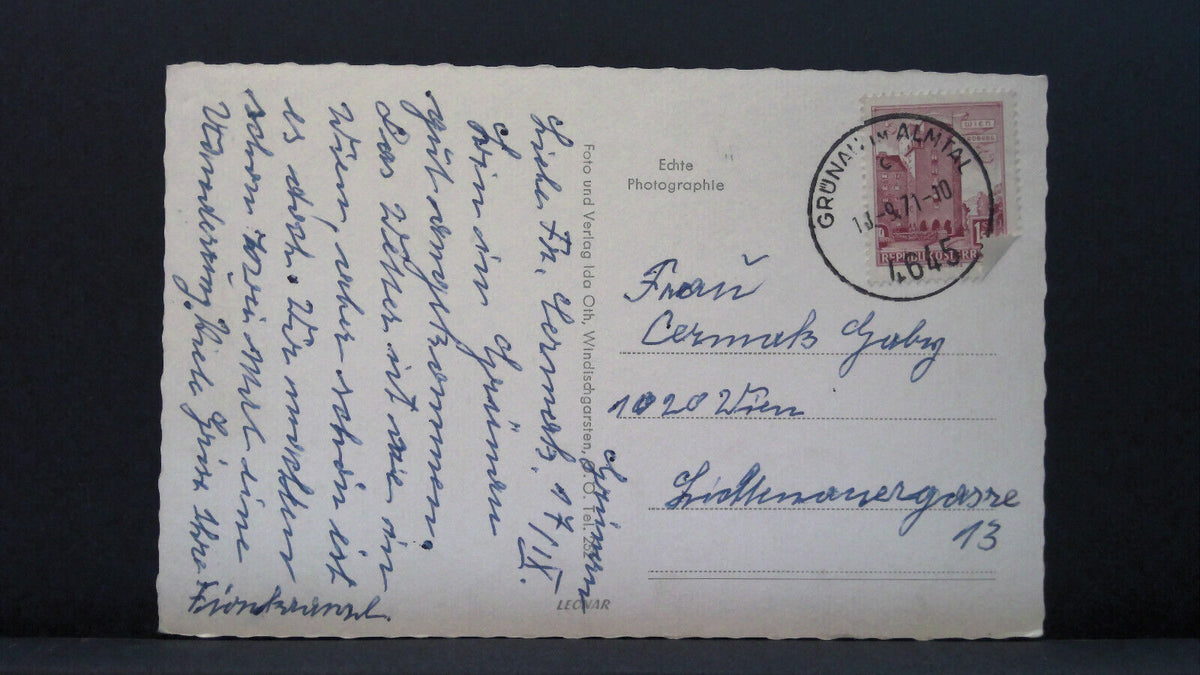 Grünau
17/IX.
Liebe Fr. Cermak.
Bin in Grünau
gut angekommen.
Das Wetter ist wie in
Wien, aber schön ist
es doch. Wir machten
schon zwei Mal eine
Wanderung, Viele Grüße Ihre
Foto und Verlag Ida Oth, Windischgarsten, O. Ö. Tel.
LEONAR
Echte
Photographie
WIEN
REPUBLIK ÖSTERR
GRÜNAU IM ALMTAL
C
-9.71-10
4645
Frau
Cermak Gaby
1020 Wien
Lichtenauergasse
13